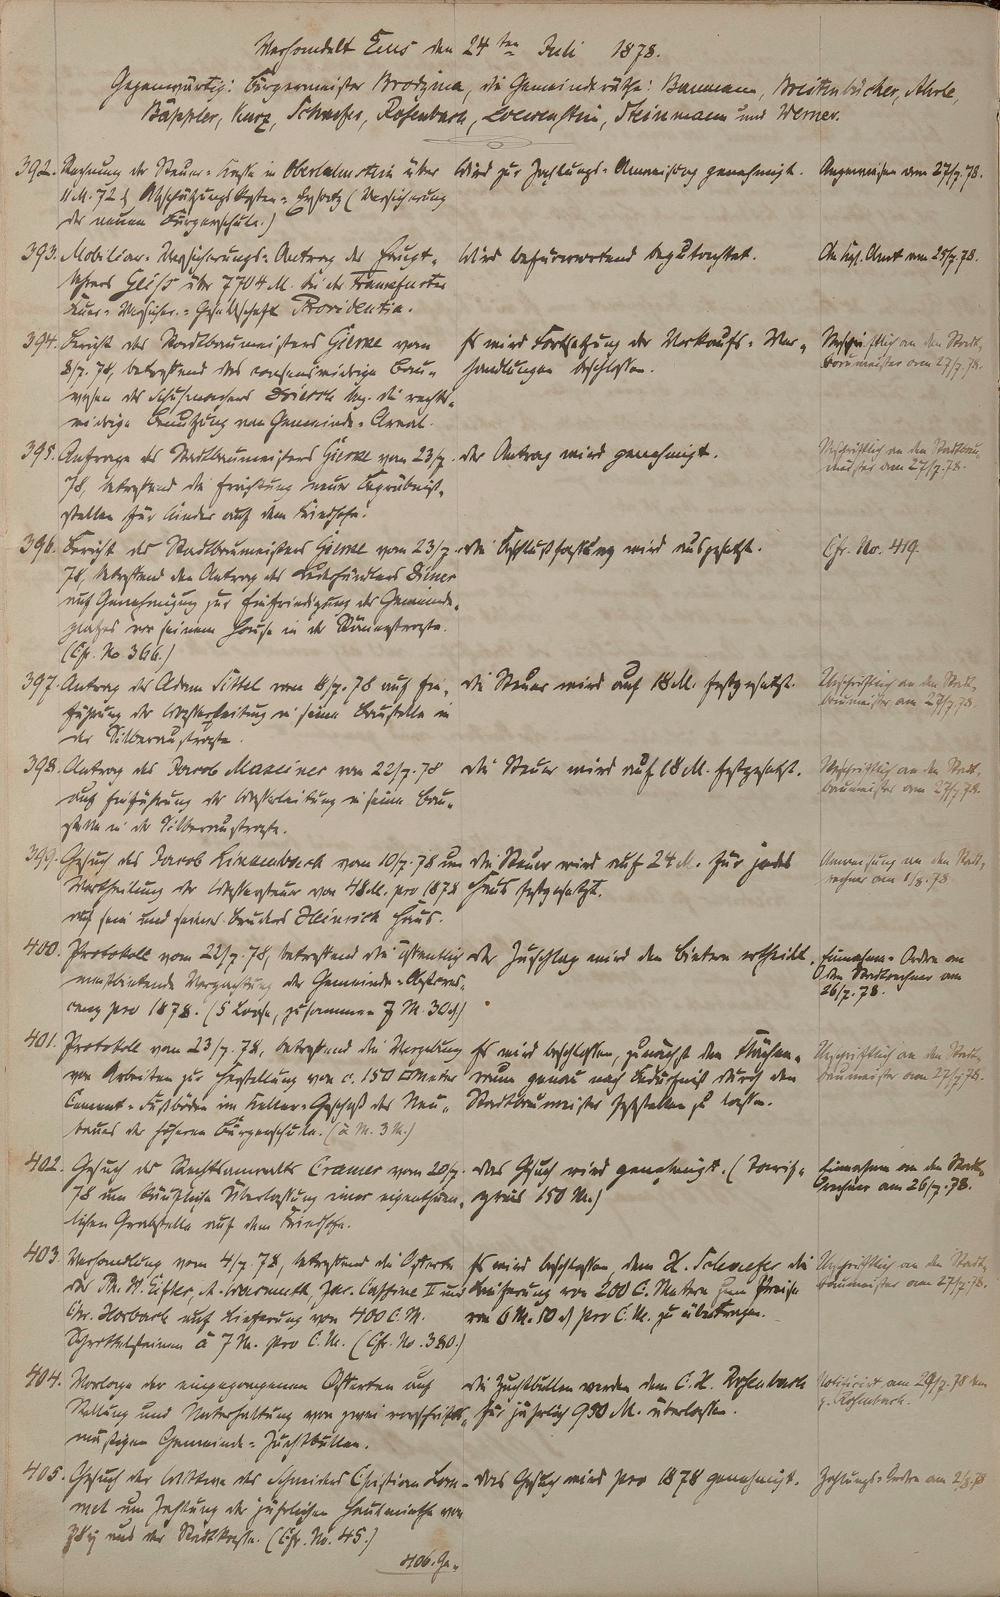 Verhandelt Ems den 24ten Juli 1878.
Gegenwärtig: Bürgermeister Brodzina, die Gemeinderäthe: Baumann, Breitenbücher, Ahrle,
Bäppler, Kurz, Schaefer, Rosenbach, Loewenstein, Steinmann und Werner.
392. Rechnung der Steuer-Kasse in Oberlahnstein über
11 M. 72 d Abschätzungskosten-Ersatz (Versicherung
der neuen Bürgerschule.)
Wird zur Zahlungs-Anweisung genehmigt.
Angewiesen am 27/7.78.
393. Mobiliar-Versicherungs-Antrag des Haupt-
lehrers Geiss über 7704 M. bei der Frankfurter
Feuer-Versicher.-Gesellschaft Providentia.
Wird befürwortend begutachtet.
An Kgl. Amt am 25/7.78.
394. Bericht des Stadtbaumeisters Gierke vom
8/7.78, betreffend das consenswidrige Bau-
wesen des Schuhmachers bez. die rechts-
widrige Benutzung von Gemeinde-Areal.
Es wird Fortsetzung der Verkaufs-Ver-
handlungen beschlossen.
Urschriftlich an den Stadt-
baumeister am 27/7.78.
395. Anfrage des Stadtbaumeisters Gierke vom 23/7.
78, betreffend die Errichtung neuer Begräbniß-
stellen für Kinder auf dem Friedhofe.
Der Antrag wird genehmigt.
Urschriftlich an den Stadtbau-
meister am 27/7.78.
396. Bericht des Stadtbaumeisters Gierke vom 23/7.
78, betreffend den Antrag des Lederhändlers
auf Genehmigung zur Einfriedigung des Gemeinde-
platzes vor seinem Hause in der
(Cfr. No 366.)
Die Beschlußfassung wird ausgesetzt.
Cfr. No. 419.
397. Antrag des Adam Sittel vom 18/7.78 auf Ein-
führung der Wasserleitung in seine Baustelle in
der Silberaustraße.
Die Steuer wird auf 18 M. festgesetzt.
Urschriftlich an den Stadt-
baumeister am 27/7.78.
398. Antrag des Jacob vom 22/7.78
auf Einführung der Wasserleitung in seine Bau-
stelle in der Silberaustraße.
Die Steuer wird auf 18 M. festgesetzt.
Urschriftlich an den Stadt-
baumeister am 27/7.78.
399. Gesuch des Jacob Linkenbach vom 10/7.78 um
Vertheilung der Wassersteuer von 48 M. pro 1878
auf sein und seines Bruders Heinrich Haus.
Die Steuer wird auf 24 M. für jedes
Haus festgesetzt.
Anweisung an den Stadt-
rechner am 1/8.78.
400. Protokoll vom 22/7.78, betreffend die öffentlich
meistbietende Verpachtung der Gemeinde-
pro 1878. (5 Loose, zusammen 7 M. 30 d)
Der Zuschlag wird den Bietern ertheilt.
Einnahme-Ordre an
den Stadtrechner am
26/7.78.
401. Protokoll vom 23/7.78, betreffend die Vergebung
von Arbeiten zur Herstellung von c. 150 □Meter
Cement-Fußböden im Keller-Geschoß des Neu-
baues der höheren Bürgerschule. (à M. 3 M.)
Es wird beschlossen, zunächst den Flächen-
raum genau nach Bedürfniß durch den
Stadtbaumeister feststellen zu lassen.
Urschriftlich an den Stadt-
baumeister am 27/7.78.
402. Gesuch des Rechtsanwalts Cramer vom 20/7.
78 um käufliche Überlassung einer eigenthüm-
lichen Grabstelle auf dem Friedhofe.
Das Gesuch wird genehmigt. (Tarif-
preis 150 M.)
Einnahme an den Stadt-
rechner am 26/7.78.
403. Verhandlung vom 4/7.78, betreffend die Offerte
der Ph. W. A. Jac. II und
Chr. Horbach auf Lieferung von 400 C.M.
Schrottelsteinen à 7 M. pro C.M. (Cfr. No. 380.)
Es wird beschlossen, dem H. Schaefer die
Lieferung von 200 C. Metern zum Preise
von 6 M. 50 d pro C.M. zu übertragen.
Urschriftlich an den Stadt-
baumeister am 27/7.78.
404. Vorlage der eingegangenen Offerten auf
Stellung und Unterhaltung von zwei vorschrifts-
mäßigen Gemeinde-Zuchtbullen.
Die Zuchtbullen werden dem C. H. Rosenbach
für jährlich 950 M. überlassen.
Notificirt am 29/7.78 dem
p. Rosenbach.
405. Gesuch der Wittwe des Schneiders Christian
um Zahlung der jährlichen Hausmiethe von
aus der Stadtkasse. (Cfr. No. 45.)
Das Gesuch wird pro 1878 genehmigt.
Zahlungs-Ordre am 2/8.78
406. Ge-